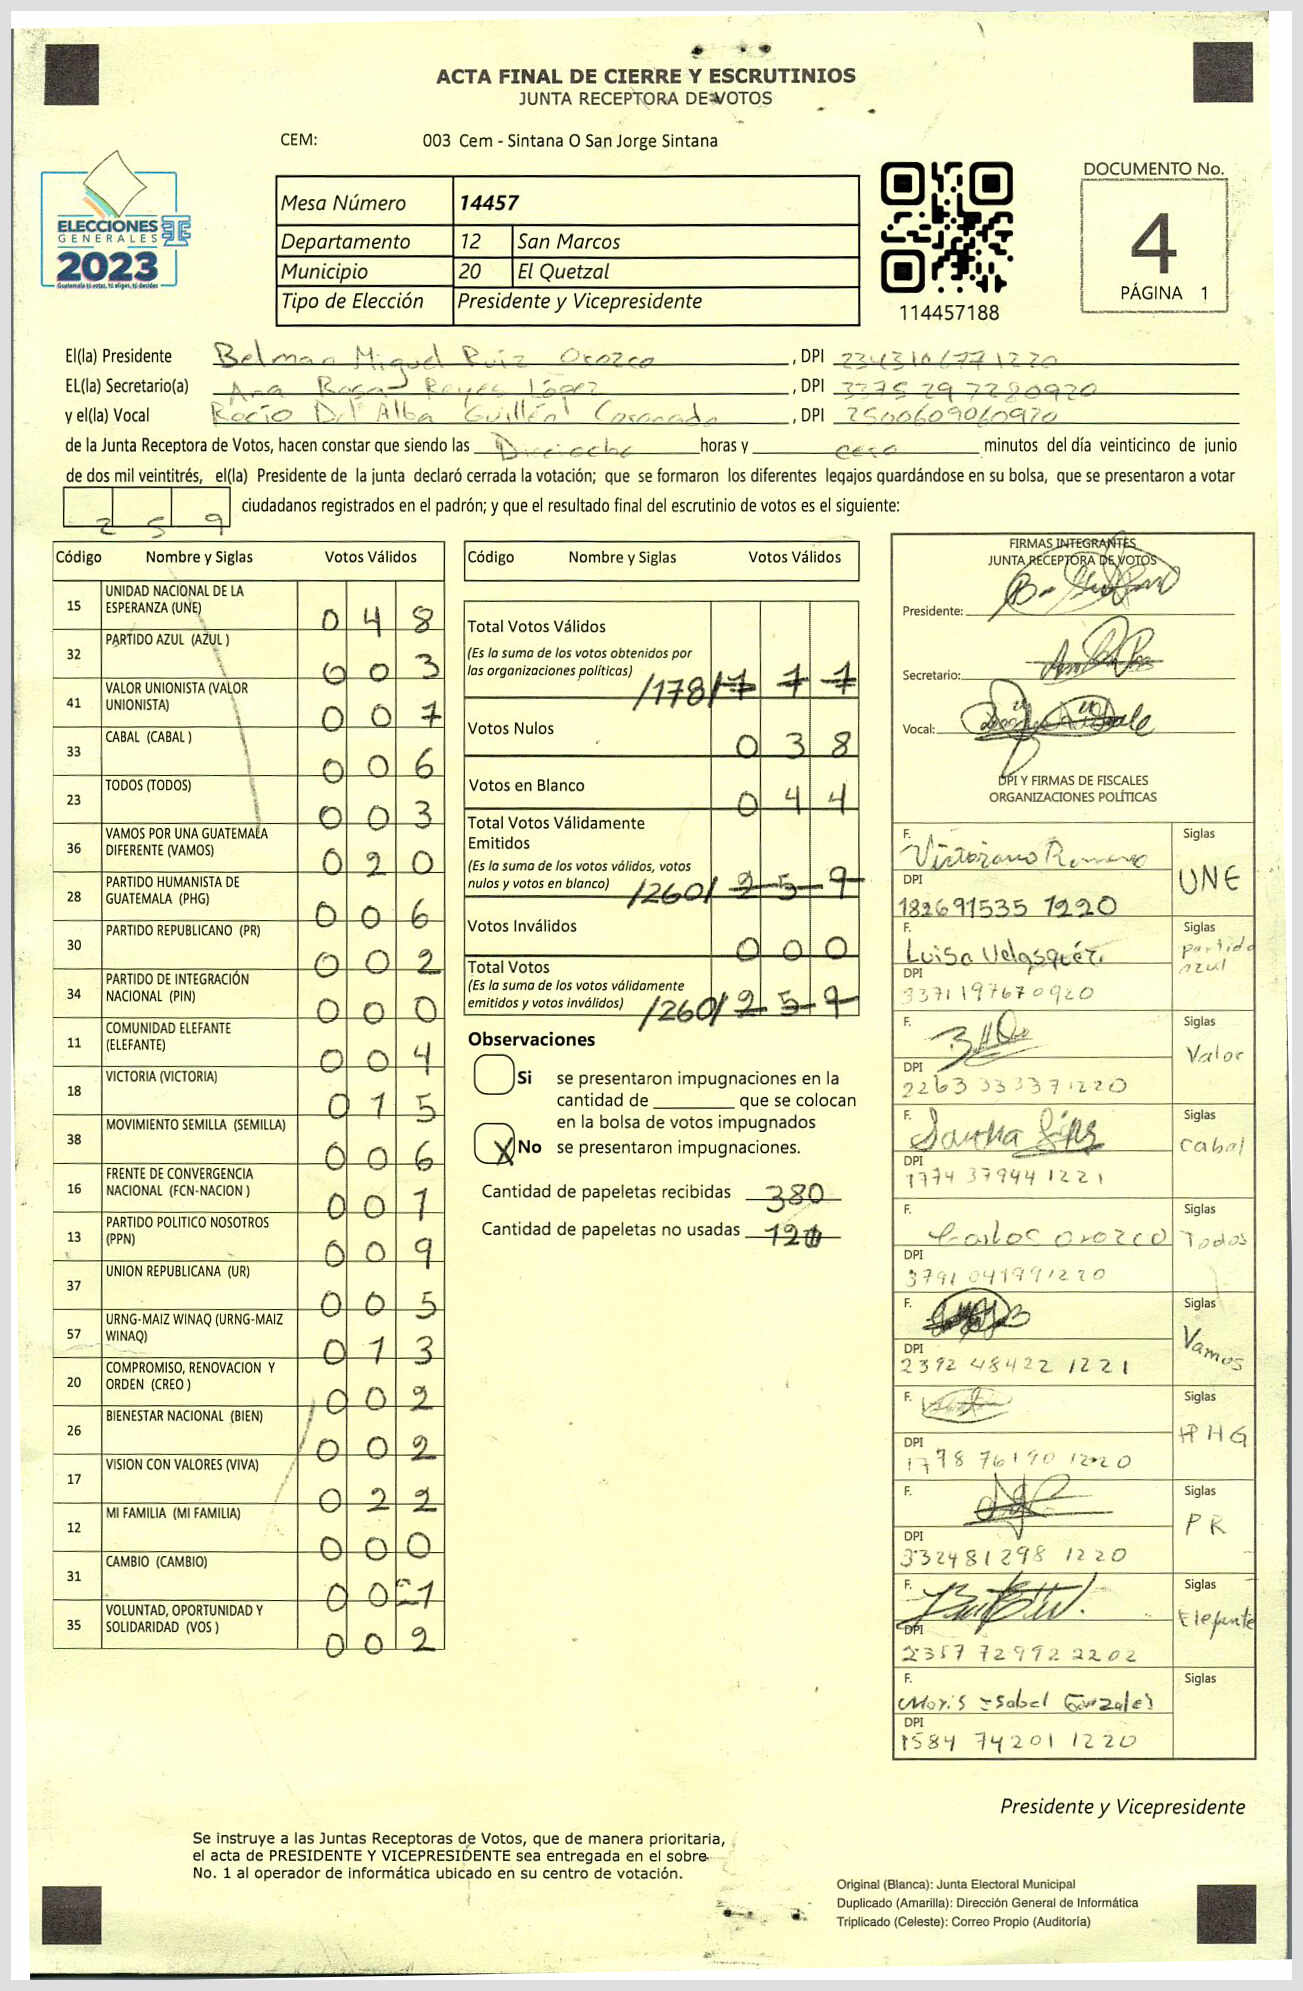 ACTA FINAL DE CIERRE Y ESCRUTINIOS
JUNTA RECEPTORA DE VOTOS
CEM: 003 Cem - Sintana O San Jorge Sintana
ELECCIONES
GENERALES
2023
Guatemala tú votas, tú eliges, tú decides
Mesa Número 14457
Departamento 12 San Marcos
Municipio 20 El Quetzal
Tipo de Elección Presidente y Vicepresidente
114457188
DOCUMENTO No.
4
PÁGINA 1
El(la) Presidente Belman Miguel Ruiz Orozco, DPI 2343106771220
EL(la) Secretario(a) Ana Rosa Reyes López, DPI 3375 29 7280920
y el(la) Vocal Rocio Del Alba Guillén Coronado, DPI 2500609060920
de la Junta Receptora de Votos, hacen constar que siendo las Dieciocho horas y cero minutos del día veinticinco de junio
de dos mil veintitrés, el(la) Presidente de la junta declaró cerrada la votación; que se formaron los diferentes legajos guardándose en su bolsa, que se presentaron a votar
2 5 9 ciudadanos registrados en el padrón; y que el resultado final del escrutinio de votos es el siguiente:
Código Nombre y Siglas Votos Válidos
15 UNIDAD NACIONAL DE LA ESPERANZA (UNE) 0 4 8
32 PARTIDO AZUL (AZUL ) 0 0 3
41 VALOR UNIONISTA (VALOR UNIONISTA) 0 0 7
33 CABAL (CABAL ) 0 0 6
23 TODOS (TODOS) 0 0 3
36 VAMOS POR UNA GUATEMALA DIFERENTE (VAMOS) 0 2 0
28 PARTIDO HUMANISTA DE GUATEMALA (PHG) 0 0 6
30 PARTIDO REPUBLICANO (PR) 0 0 2
34 PARTIDO DE INTEGRACIÓN NACIONAL (PIN) 0 0 0
11 COMUNIDAD ELEFANTE (ELEFANTE) 0 0 4
18 VICTORIA (VICTORIA) 0 1 5
38 MOVIMIENTO SEMILLA (SEMILLA) 0 0 6
16 FRENTE DE CONVERGENCIA NACIONAL (FCN-NACION ) 0 0 1
13 PARTIDO POLITICO NOSOTROS (PPN) 0 0 9
37 UNION REPUBLICANA (UR) 0 0 5
57 URNG-MAIZ WINAQ (URNG-MAIZ WINAQ) 0 1 3
20 COMPROMISO, RENOVACION Y ORDEN (CREO ) 0 0 2
26 BIENESTAR NACIONAL (BIEN) 0 0 2
17 VISION CON VALORES (VIVA) 0 2 2
12 MI FAMILIA (MI FAMILIA) 0 0 0
31 CAMBIO (CAMBIO) 0 0 1
35 VOLUNTAD, OPORTUNIDAD Y SOLIDARIDAD (VOS ) 0 0 2
Código Nombre y Siglas Votos Válidos
Total Votos Válidos
(Es la suma de los votos obtenidos por
las organizaciones políticas) /178/ 1 7 7
Votos Nulos 0 3 8
Votos en Blanco 0 4 4
Total Votos Válidamente
Emitidos
(Es la suma de los votos válidos, votos
nulos y votos en blanco) /260/ 2 5 9
Votos Inválidos 0 0 0
Total Votos
(Es la suma de los votos válidamente
emitidos y votos inválidos) /260/ 2 5 9
Observaciones
Si se presentaron impugnaciones en la
cantidad de ________ que se colocan
en la bolsa de votos impugnados
X No se presentaron impugnaciones.
Cantidad de papeletas recibidas 380
Cantidad de papeletas no usadas
FIRMAS INTEGRANTES
JUNTA RECEPTORA DE VOTOS
Presidente:
Secretario:
Vocal:
DPI Y FIRMAS DE FISCALES
ORGANIZACIONES POLÍTICAS
F. Victoriano Romero Siglas UNE
DPI 182691535 1220
F. Luisa Velasquéz Siglas partido azul
DPI 3371197670920
F. Siglas Valor
DPI 2263 33337 1220
F. Siglas Cabal
DPI 1774 37944 1221
F. Carlos Orozco Siglas Todos
DPI 3791 041991220
F. Siglas Vamos
DPI 2392 48422 1221
F. Siglas PHG
DPI 1778 76190 1220
F. Siglas PR
DPI 332481298 1220
F. Siglas Elefante
DPI 2357 72992 2202
F. Maris Isabel Gonzales Siglas
DPI 1584 74201 1220
Presidente y Vicepresidente
Se instruye a las Juntas Receptoras de Votos, que de manera prioritaria,
el acta de PRESIDENTE Y VICEPRESIDENTE sea entregada en el sobre
No. 1 al operador de informática ubicado en su centro de votación.
Original (Blanca): Junta Electoral Municipal
Duplicado (Amarilla): Dirección General de Informática
Triplicado (Celeste): Correo Propio (Auditoría)